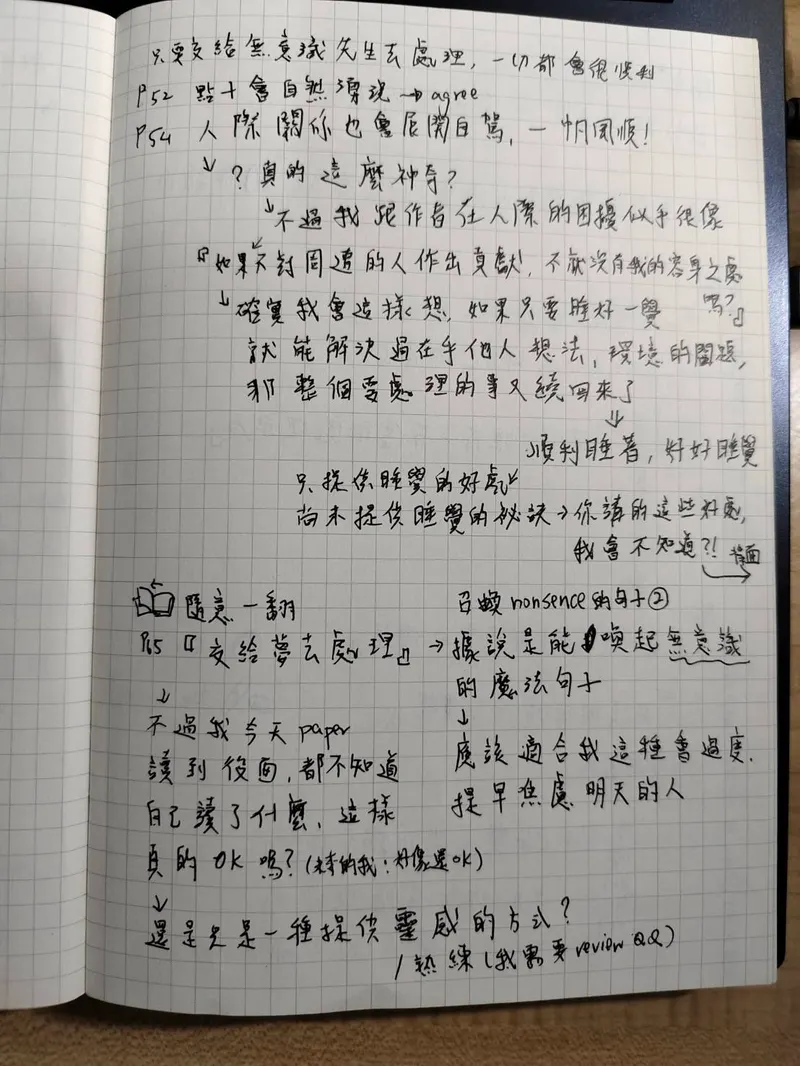 只要交給無意識先生去處理，一切都會很順利
P52 點子會自然湧現→agree
P54 人際關係也會展開自駕，一帆風順！
↓？真的這麼神奇？
↳不過我跟作者在人際的困擾似乎很像
『如果不對周遭的人作出貢獻，不就沒有我的容身之處嗎？』
↓確實我會這樣想，如果只要睡好一覺
就能解決過在乎他人想法、環境的問題，
那整個要處理的事又繞回來了
⇓
順利睡著，好好睡覺
只提供睡覺的好處↙
尚未提供睡覺的祕訣→你講的這些好處，
我會不知道?! 背面
隨意一翻
P65『交給夢去處理』
↓
不過我今天paper
讀到後面，都不知道
自己讀了什麼，這樣
真的OK嗎？(未來的我：好像還OK)
↓
還是只是一種提供靈感的方式？
/熟練(我需要review QQ)
召喚nonsence的句子②
→據說是能喚起無意識
的魔法句子
↓
應該適合我這種會過度、
提早焦慮明天的人